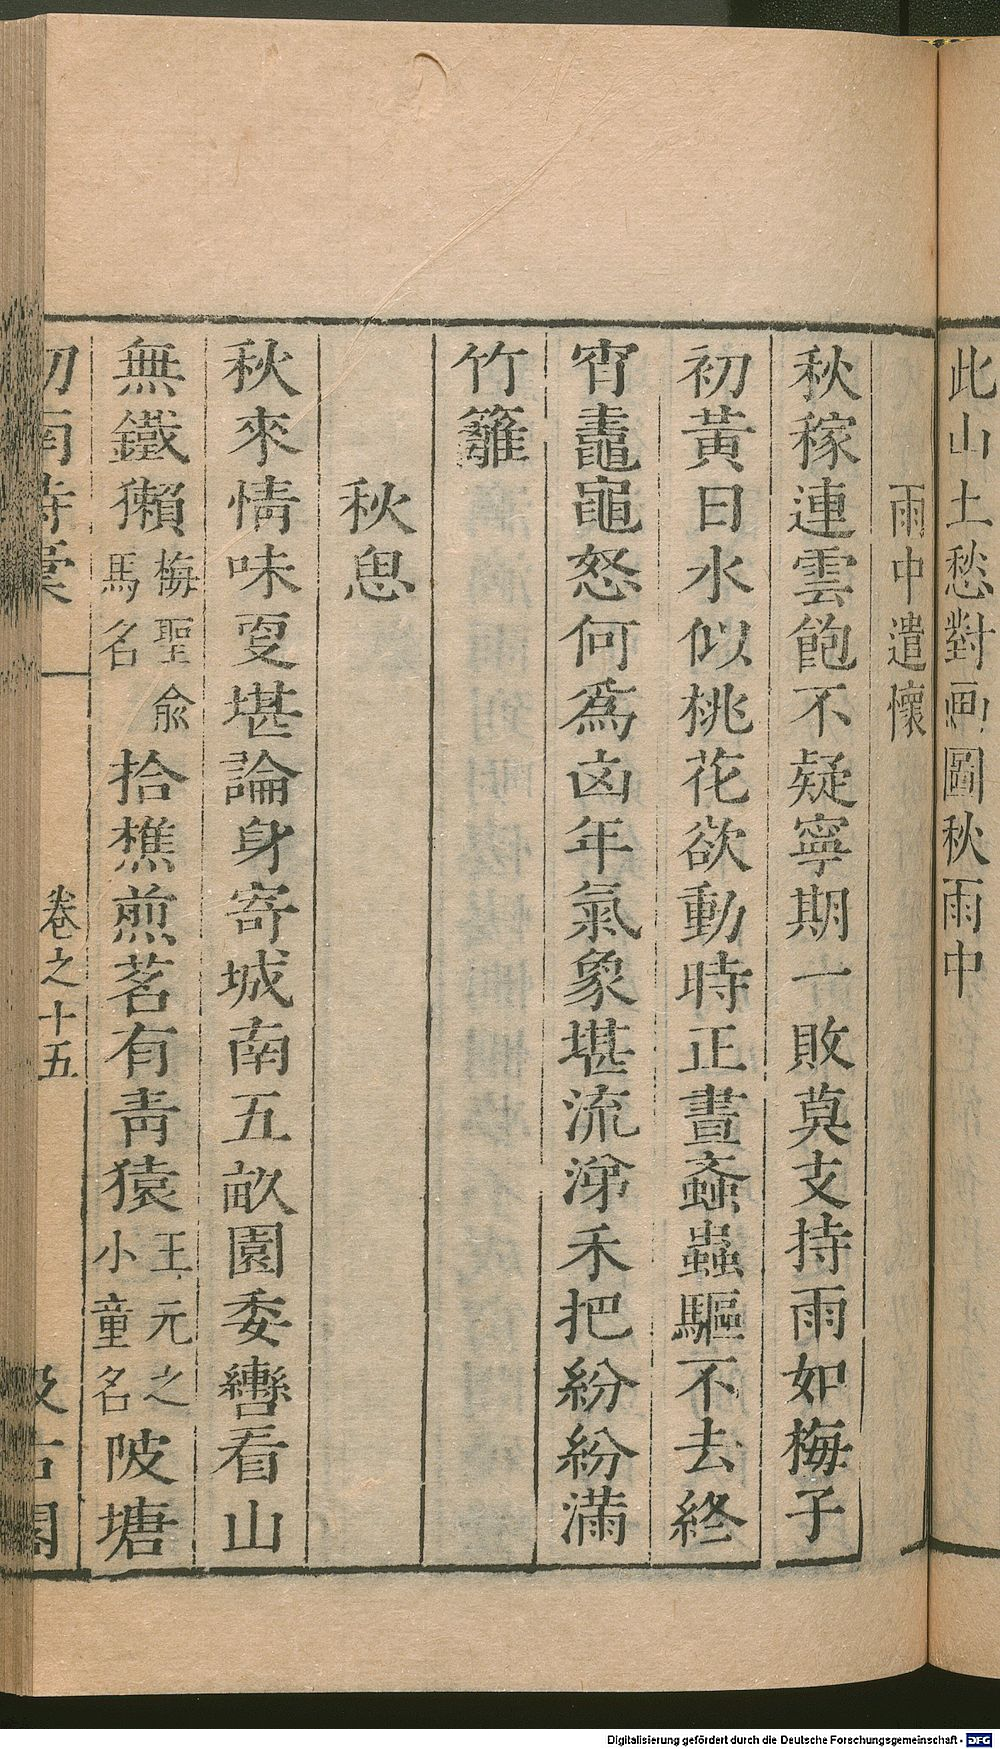 此山土愁對画圖秋雨中
雨中遣懷
秋稼連雲飽不疑寧期一敗莫支持雨如梅子
初黃日水似桃花欲動時正晝蚉蟲驅不去終
宵鼃黽怒何爲凶年氣象堪流涕禾把紛紛滿
竹籬
秋思
秋來情味更堪論身寄城南五畝園委轡看山
無鐵獺梅聖俞馬名拾樵煎茗有青猿王元之小童名陂塘
卷之十五
Digitalisierung gefördert durch die Deutsche Forschungsgemeinschaft - DFG